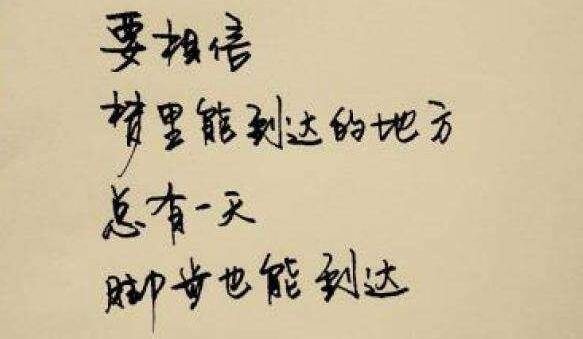 要相信
梦里能到达的地方
总有一天
脚步也能到达